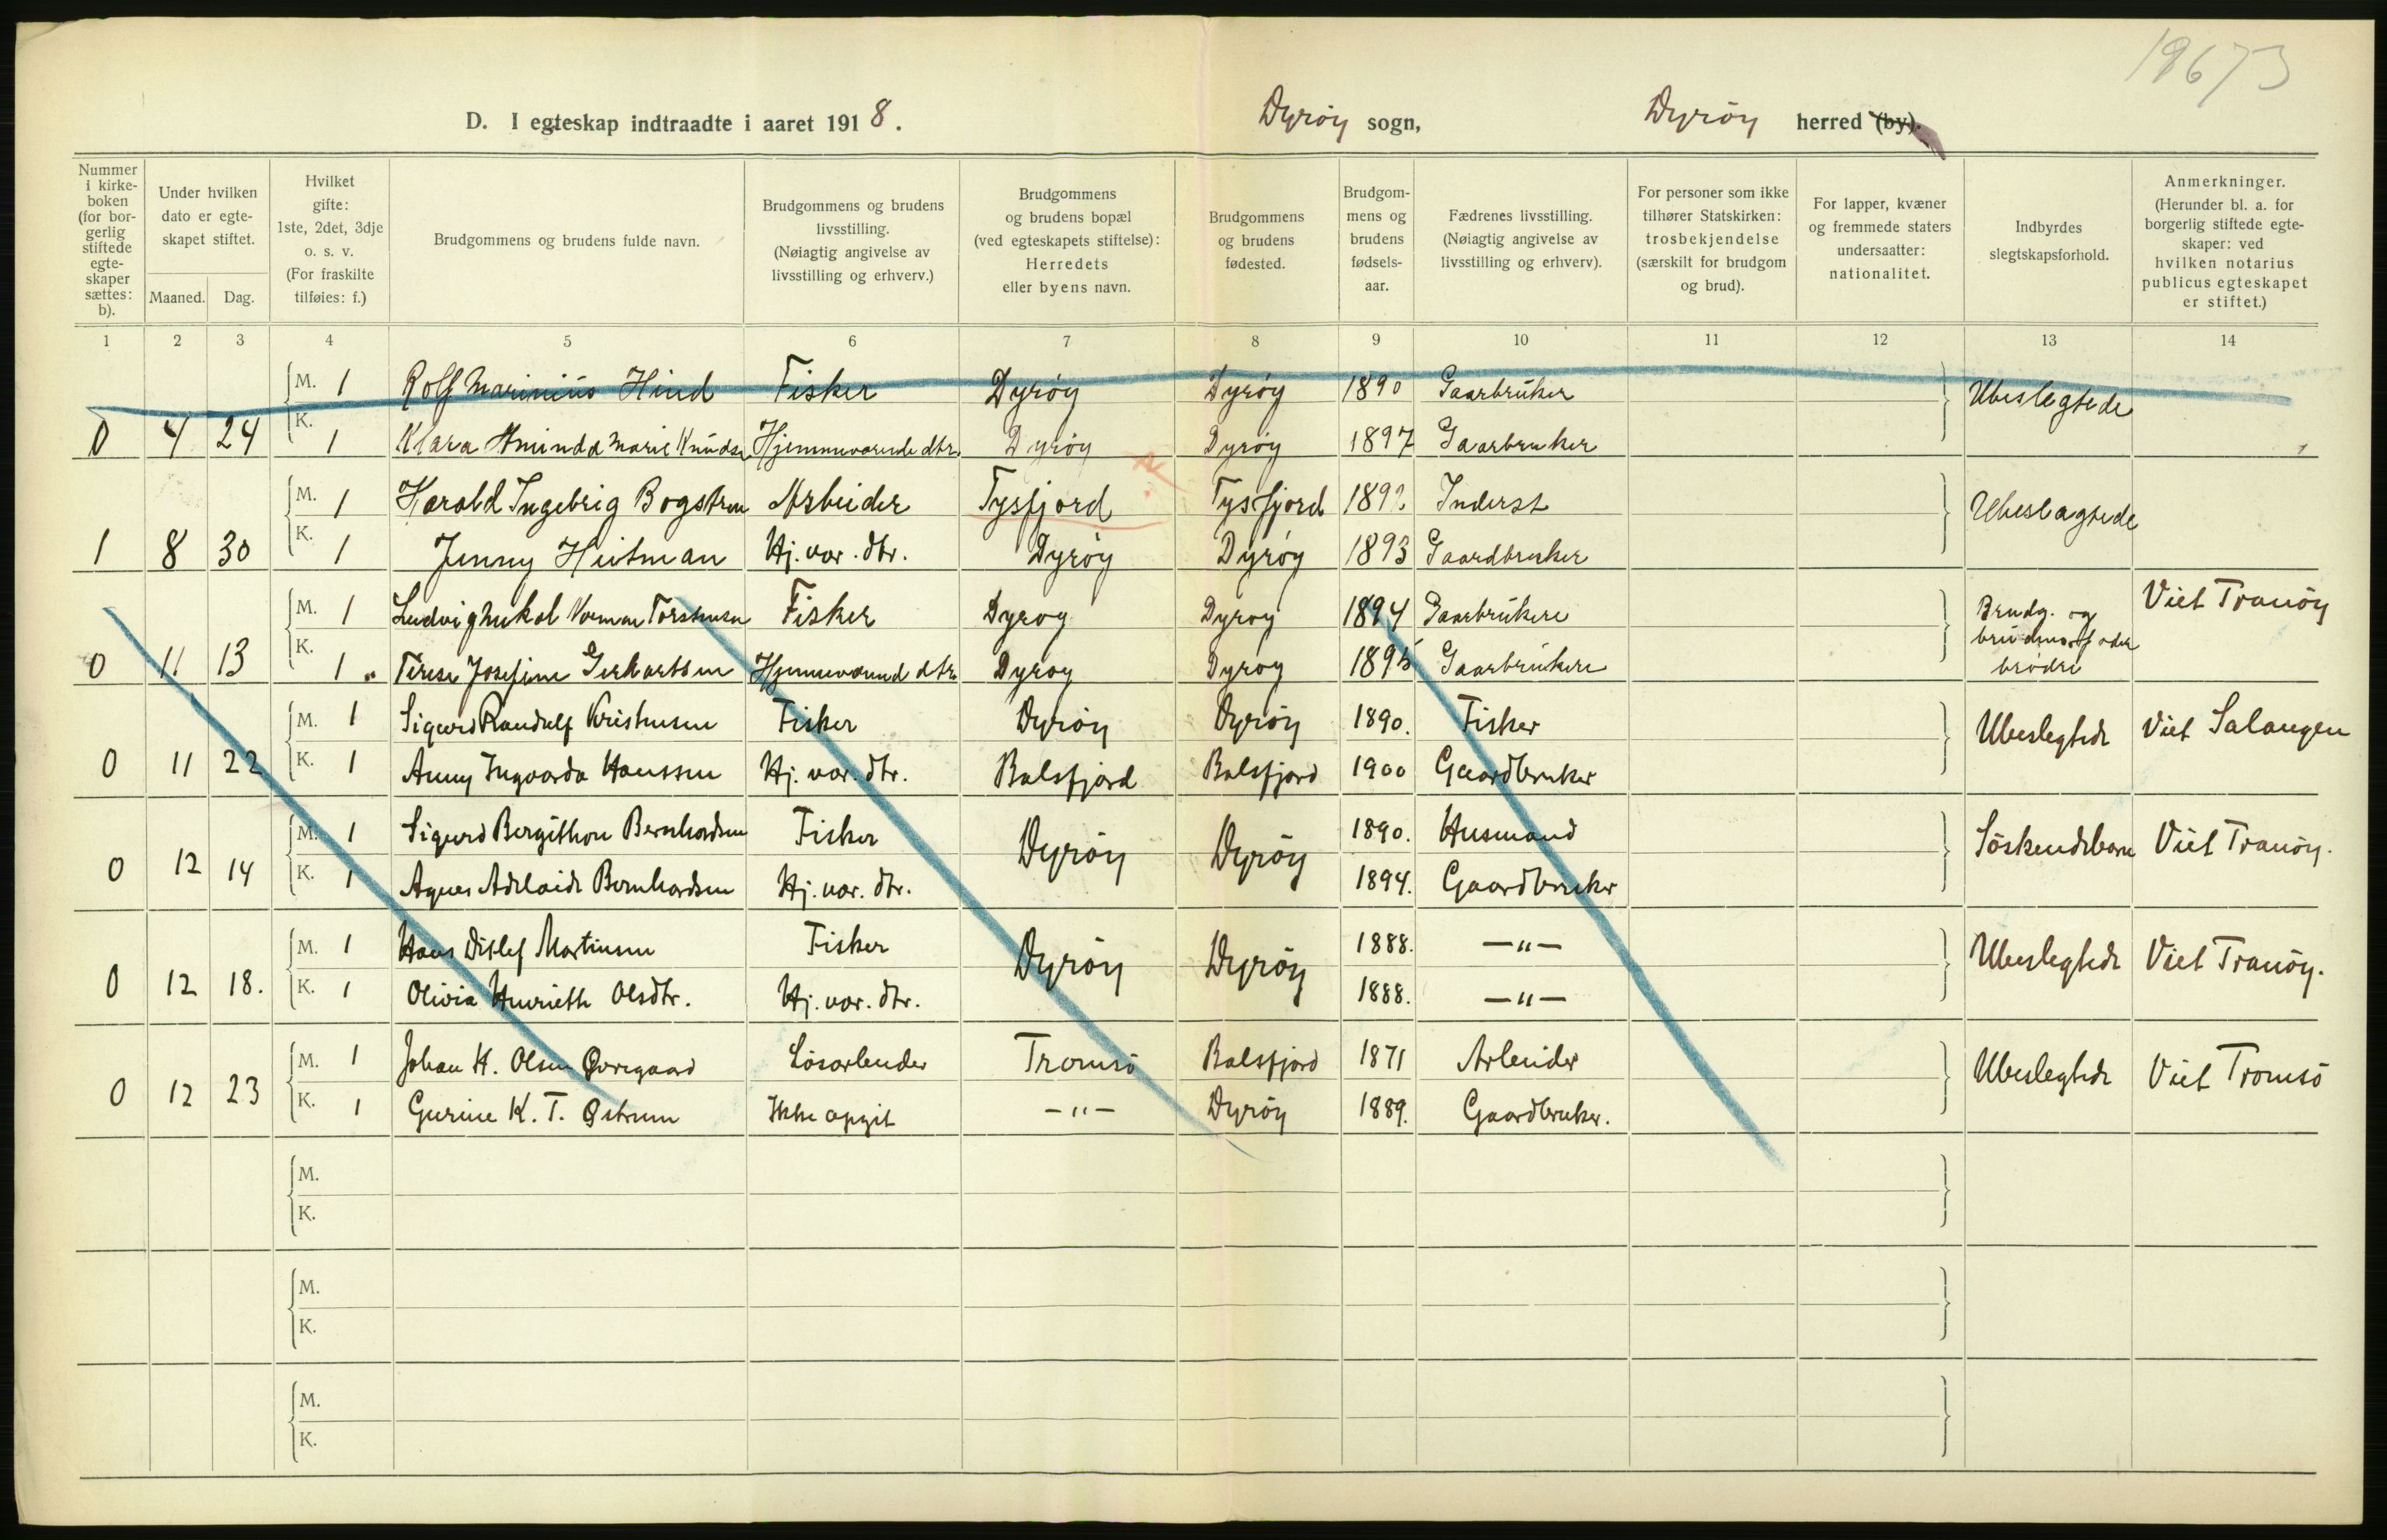 18673
D. I egteskap indtraadte i aaret 1918. Dyröy sogn, Dyröy herred (by).
Nummer i kirkeboken (for borgerlig stiftede egteskaper sættes: b).
Under hvilken dato er egteskapet stiftet.
Maaned. Dag.
Hvilket gifte: 1ste, 2det, 3dje o. s. v. (For fraskilte tilføies: f.)
Brudgommens og brudens fulde navn.
Brudgommens og brudens livsstilling. (Nøiagtig angivelse av livsstilling og erhverv.)
Brudgommens og brudens bopæl (ved egteskapets stiftelse): Herredets eller byens navn.
Brudgommens og brudens fødested.
Brudgommens og brudens fødselsaar.
Fædrenes livsstilling. (Nøiagtig angivelse av livsstilling og erhverv).
For personer som ikke tilhører Statskirken: trosbekjendelse (særskilt for brudgom og brud).
For lapper, kvæner og fremmede staters undersaatter: nationalitet.
Indbyrdes slegtskapsforhold.
Anmerkninger. (Herunder bl. a. for borgerlig stiftede egteskaper: ved hvilken notarius publicus egteskapet er stiftet.)
1 2 3 4 5 6 7 8 9 10 11 12 13 14
M. 1 Rolf Marinius Hind Fisker Dyröy Dyröy 1890 Gaarbruker Ubeslegtede
0 4 24 K. 1 Klara Aminda Marie Dyröy Dyröy 1897 Gaarbruker
M. 1 Harald Ingebrig Arbeider Tysfjord Tysfjord Inderst Ubeslagtede
1 8 30 K. 1 Jenny Heitman Hj. vær. dtr. Dyröy Dyröy 1893 Gaardbruker
M. 1 Fisker Dyrog Dyroy 1894 Gaarbrukere Brudg. og Viet Tranöy
0 11 13 K. 1 Terese Josefine Gerhartsen Dyroy Dyroy 1895 Gaarbrukere brödre
M. 1 Sigurd Randulf Kristensen Fisker Dyröy Dyröy 1890. Fisker Ubeslegtede Viet Salangen
0 11 22 K. 1 Anny Ingvarda Hanssen Hj. vær. dtr. Balsfjord Balsfjord 1900 Gaardbruker
M. 1 Sigurd Bergithon Bernhardsen Fisker Dyröy Dyröy 1890. Husmand Söskendebarn Viet Tranöy.
0 12 14 K. 1 Agnes Adelaide Bernhardsen Hj. vær. dtr. 1894. Gaardbruker
M. 1 Hans Ditlef Martinsen Fisker Dyröy Dyröy 1888. —"— Ubeslegtede Viet Tranöy.
0 12 18. K. 1 Olivia Henriette Olsdtr. Hj. vær. dtr. 1888. —"—
M. 1 Johan H. Olsen Lösarbeider Tromsö Balsfjord 1871 Arbeider Ubeslegtede Viet Tromsö
0 12 23 K. 1 Gurine K. T. Östrem Ikke opgit —"— Dyröy 1889. Gaardbruker.
M.
K.
M.
K.
M.
K.